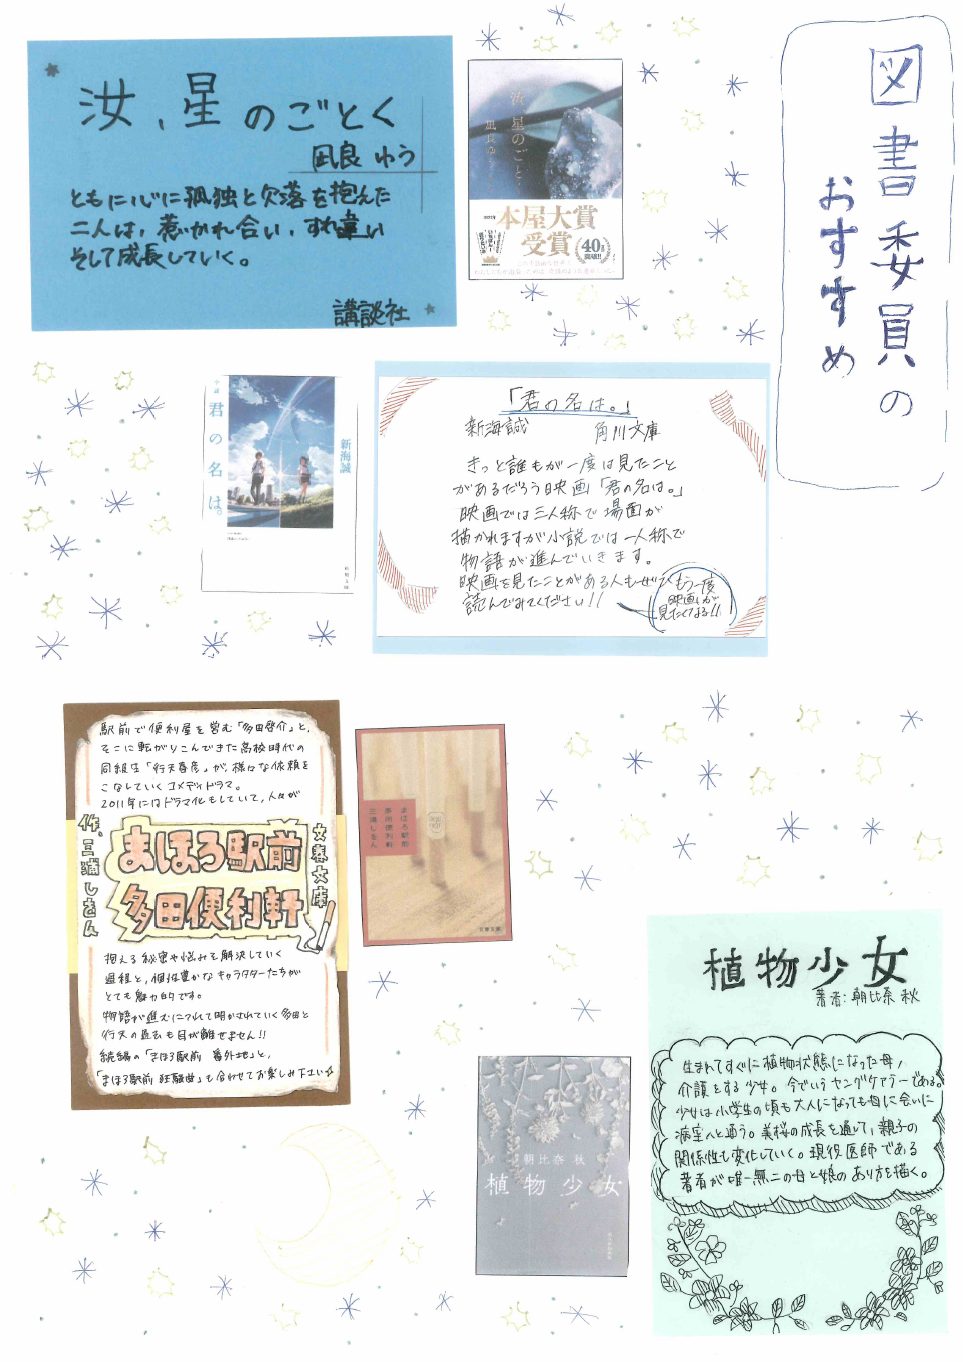 図書委員の
おすすめ
汝、星のごとく
凪良 ゆう
ともに心に孤独と欠落を抱えた
二人は、惹かれ合い、すれ違い
そして成長していく。
講談社
汝、星のごとく
凪良ゆう
本屋大賞
受賞
40万部
突破!!
小説
君の名は。
新海誠
角川文庫
「君の名は。」
新海誠 角川文庫
きっと誰もが一度は見たこと
があるだろう映画「君の名は。」
映画では三人称で場面が
描かれますが小説では一人称で
物語が進んでいきます。
映画を見たことがある人もぜひ
読んでみてください!!
もう一度
映画が
見たくなる!!
駅前で便利屋を営む「多田啓介」と、
そこに転がりこんできた高校時代の
同級生「行天春彦」が、様々な依頼を
こなしていくコメディドラマ。
2011年にはドラマ化もしていて、人々が
作、三浦しをん
まほろ駅前
多田便利軒
文春文庫
抱える秘密や悩みを解決していく
過程と、個性豊かなキャラクターたちが
とても魅力的です。
物語が進むにつれて明かされていく多田と
行天の過去も目が離せません!!
続編の「まほろ駅前 番外地」と、
「まほろ駅前 狂騒曲」も合わせてお楽しみ下さい☆
まほろ駅前
多田便利軒
三浦しをん
文春文庫
植物少女
著者:朝比奈 秋
生まれてすぐに植物状態になった母、
介護をする少女。今でいうヤングケアラーである。
少女は小学生の頃も大人になっても母に会いに
病室へと通う。美桜の成長を通して、親子の
関係性も変化していく。現役医師である
著者が唯一無二の母と娘のあり方を描く。
朝比奈 秋
植物少女